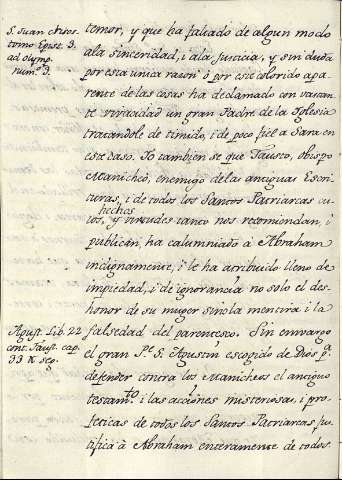 S. Juan Chris.
tomo Epist. 3.
ad olymp.
num.º 3.
temor, y que ha faltado de algun modo
ala sinceridad, i ala Justicia, y sin duda
por esta unica rason ò por este colorido apa
rente de las cosas ha declamado con vastan
te vivacidad un gran Padre de la Iglesia
tratandole de timido, i de poco fiel a Sara en
este caso. Yo tambien se que Fausto, obispo
Manicheo, enemigo delas antiguas Escri
turas, i de todos los Santos Patriarcas cu
ios, hechos y virtudes tanto nos recomiendan, i
publican, ha calumniado à Abraham
indignamente, i le ha atribuido lleno de
impiedad, i de ignorancia no solo el des
honor de su muger sino la mentira i la
falsedad del parentesco. Sin emvargo
Agust. Lib. 22
cont. Faust. cap.
33 & seg.
el gran P.e S. Agustin escogido de Dios p.a
defender contra los Manicheos el antiguo
testam.to i las acciones misteriosas, i pro
feticas de todos los Santos Patriarcas jus
tifica à Abraham enteramente de todos